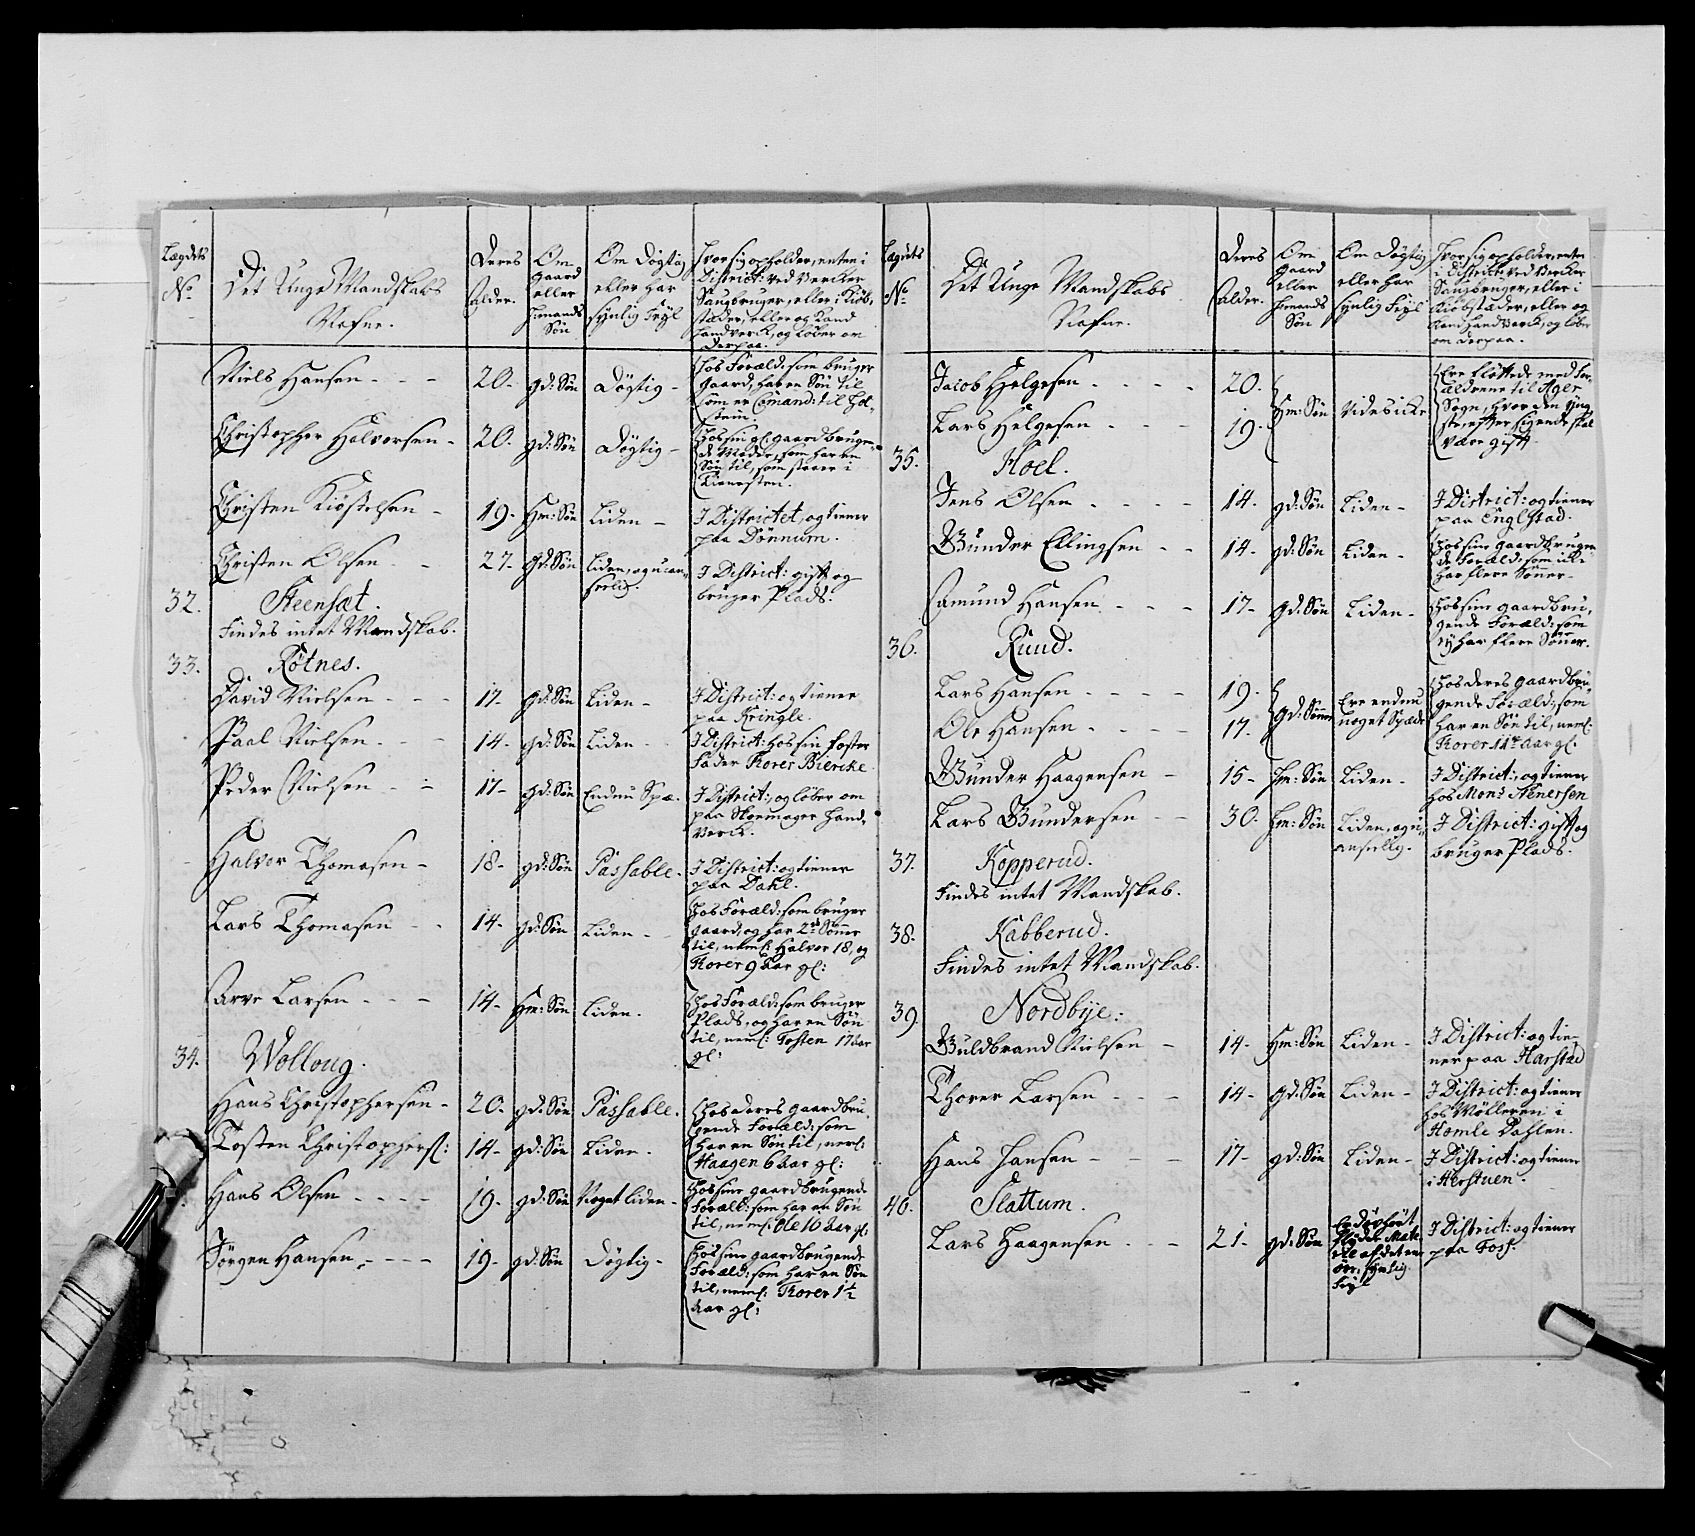 Lægdets No | Det Unge Mandskabs Nafne. | Deres Alder. | Om Gaard eller Huusmands Søn | Om Døgtig eller har synlig Feyl | Hvor sig opholder, enten i District: ved Vercker Saugbruger, eller i Kiøbstæder, eller og Land handverck, og løber om derpaa.
Niels Hansen - - - 20. gd: Søn Døgtig - Hos Foræld: som bruger
gaard, har en Søn til
som er Comand: til Hol-
stein.
Christopher Halvorsen - 20. gd: Søn Døgtig - Hos sin gl. gaardbrugen-
de Moder, som har en
Søn til, som staaer i
Tienesten.
Christen Kiøstelsen - 19. Hm: Søn Liden - I Districtet, og tiener
paa Dønnum.
Christen Olsen - - 27. gd: Søn Liden, og uan- I District: gift og
seelig. bruger Plads.
32. Steensæt.
Findes intet Mandskab.
33. Røtnes.
David Nielsen - - - 17. gd: Søn Liden - I District: og tiener
paa Kringle.
Paal Nielsen - - - 14. gd: Søn Liden - I District: hos sin foster
Fader Torer Biercke.
Peder Nielsen - - 17. gd: Søn Endnu Spæ. I District:, og løber om
paa Skomager Hand-
verck.
Halvor Thomasen - 18. gd: Søn Passable. I District: og tiener
paa Dahl.
Lars Thomasen - - 14. gd: Søn Liden - Hos Foræld: som bruger
gaard, og har 2de Sønner
til, neml: Halvor 18, og
Torer 9 Aar gl:
Arve Larsen - - - 14. Hm: Søn Liden. Hos Foræld: som bruger
Plads, og har en Søn
til, neml: Tosten 17 Aar
gl:
34. Wolloug.
Hans Christophersen - 20. gd: Søn Passable. Hos deres gaardbru-
gende Foræld: som
Tosten Christophers: 14. gd: Søn Liden. har en Søn til, neml:
Haagen 6 Aar gl:
Hans Olsen - - - - 19. gd: Søn Noget liden - Hos sine gaardbrugende
Foræld: som har en Søn
til, neml: Ole 10 Aar gl.
Jørgen Hansen - - - - 19. gd: Søn Døgtig - Hos sine gaardbrugende
Foræld: som har en Søn
til, neml: Torer 1 1/2
Aar gl:
Lægdets No | Det Unge Mandskabs Nafne. | Deres Alder. | Om Gaard eller Huusmands Søn | Om Døgtig eller har synlig Feyl | Hvor sig opholder, enten i District: ved Vercker Saugbruger, eller i Kiøbstæder, eller og Land Handverck, og løber om derpaa.
Jacob Helgesen - - - - 20. Ere fløttede med For-
ældrene til Ager
Hm: Søn Vides icke Sogn, hvor den yng-
Lars Helgesen - - - 19. ste, efter sigende, skal
være gift
35. Hoel.
Jens Olsen - - - - 14. gd: Søn Liden - I District: og tiener
paa Englstad.
Gunder Ellingsen - - 14. gd: Søn Liden - Hos sine gaardbrugen-
de Foræld: som icke
har flere Sønner -
Amund Hansen - - - 17. gd: Søn Liden - Hos sine gaardbru-
gende Foræld: som
ey har flere Sønner.
36. Ruud.
Lars Hansen - - - - 19. Hos deres gaardbru-
gd: Sønner Ere endnu gende Foræld: som
Ole Hansen - - - - 17. noget Spæde har en Søn til, neml:
Torer 11te Aar gl.
Gunder Haagensen - 15. hm: Søn Liden - I District:, og tiener
hos Mons: Nenersen
Lars Gundersen - - 30. hm: Søn Liden, og u- I District: gift og
anseelig. bruger Plads.
37. Kopperud.
Findes intet Mandskab.
38. Kabberud.
Findes intet Mandskab.
39. Nordbye:
Guldbrand Nielsen - 14. Hm: Søn Liden - I District: og tie-
ner paa Harstad
Thorer Larsen - - - 14. gd: Søn Liden - I District: og tiener
hos Mølleren i
Homle Dahlen.
Hans Hansen - - - 17. gd: Søn Liden - I District: og tiener
i Herstuen.
40. Slattum.
Lars Haagensen - - - 21. gd: Søn Er døvhørt I District: og tiener
flyder Mate- paa Foss.
rie af det ene
øre, synlig
Feyl